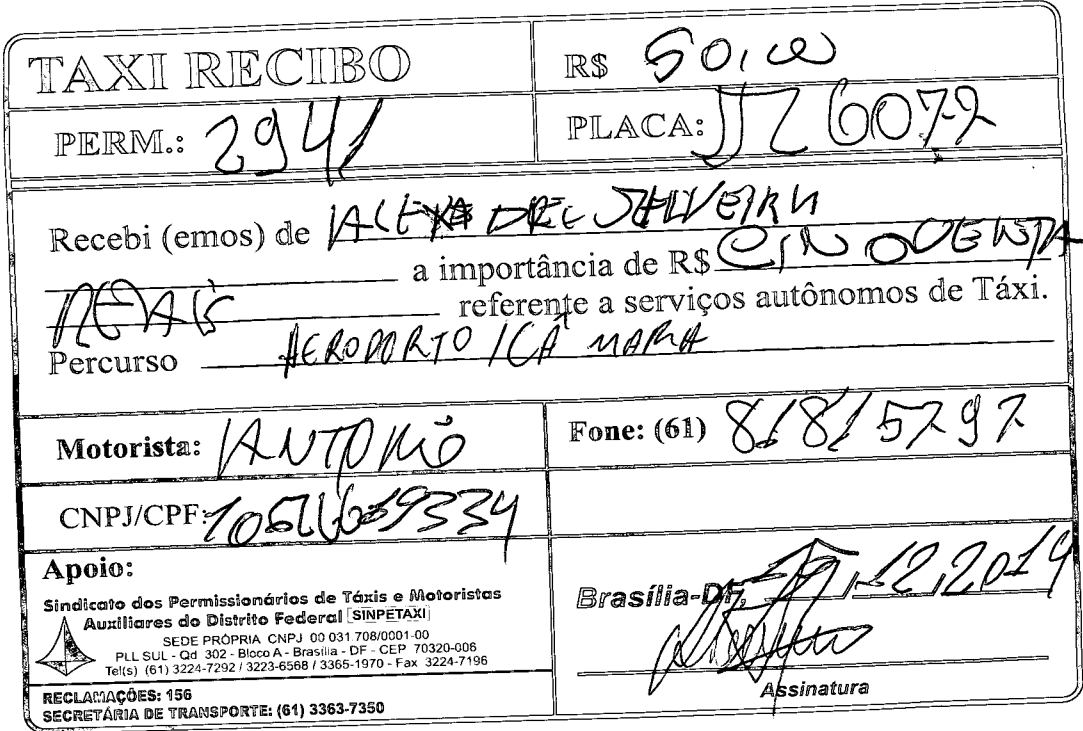 TAXI RECIBO
R$ 50,00
PERM.: 2941
PLACA: JJZ 6072
Recebi (emos) de ALEXADRE SILVEIRA
a importância de R$ CINQUENTA
REAIS referente a serviços autônomos de Táxi.
Percurso AEROPORTO / CÂMARA
Motorista: ANTONIO
Fone: (61) 81815797
CNPJ/CPF:
Apoio:
Sindicato dos Permissionários de Táxis e Motoristas
Auxiliares do Distrito Federal SINPETAXI
SEDE PRÓPRIA CNPJ 00 031.708/0001-00
PLL SUL - Qd 302 - Bloco A - Brasília - DF - CEP 70320-006
Tel(s) (61) 3224-7292 / 3223-6568 / 3365-1970 - Fax 3224-7196
RECLAMAÇÕES: 156
SECRETÁRIA DE TRANSPORTE: (61) 3363-7350
Brasília-DF, / 12, 2014
Assinatura